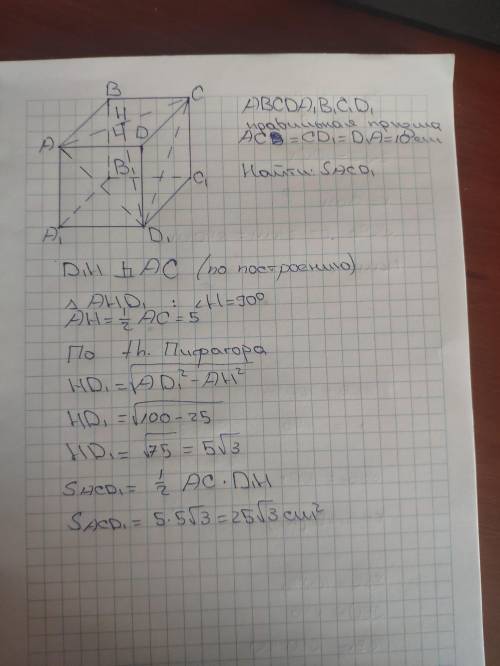 B
C
H
A
D
B₁
C₁
A₁
D₁
ABCDA₁B₁C₁D₁
правильная призма
AC = CD₁ = D₁A = 10 см
Найти: SACD₁
D₁H ⊥ AC (по построению)
△ AHD₁ : ∠H = 90°
AH = 1/2 AC = 5
По th. Пифагора
HD₁ = √(AD₁² - AH²)
HD₁ = √(100 - 25)
HD₁ = √75 = 5√3
SACD₁ = 1/2 AC · D₁H
SACD₁ = 5 · 5√3 = 25√3 см²